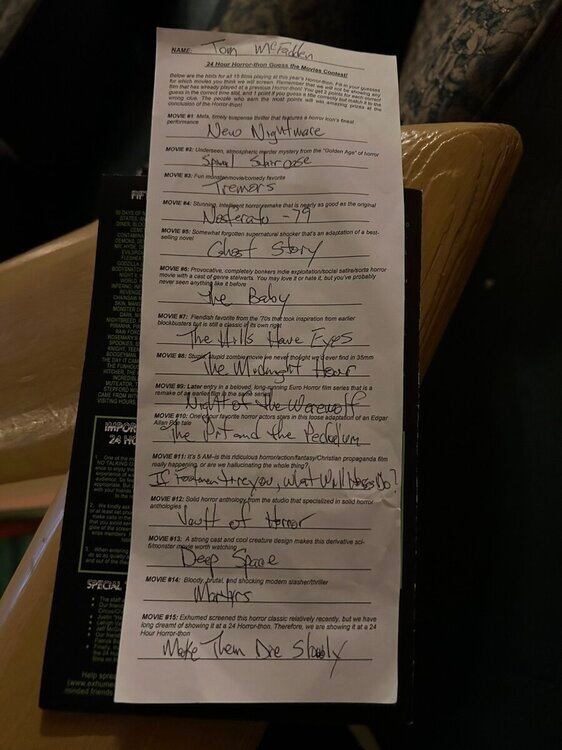 NAME: Tom McFadden
24 Hour Horror-thon Guess the Movies Contest!
Below are the hints for all 15 films playing at this year's Horror-thon. Fill in your guesses
for which movies you think we will screen. Remember that we will not be showing any
film that has already played at a previous Horror-thon! You get 2 points for each correct
guess in the correct time slot, and 1 point if you guess a title correctly but match it to the
wrong clue. The people who earn the most points will win amazing prizes at the
conclusion of the Horror-thon!
MOVIE #1: Meta, timely suspense thriller that features a horror icon's finest
performance
New Nightmare
MOVIE #2: Underseen, atmospheric murder mystery from the "Golden Age" of horror
Spiral Staircase
MOVIE #3: Fun monster movie/comedy favorite
Tremors
MOVIE #4: Stunning, intelligent horror remake that is nearly as good as the original
Nosferatu -79
MOVIE #5: Somewhat forgotten supernatural shocker that's an adaptation of a best-
selling novel
Ghost Story
MOVIE #6: Provocative, completely bonkers indie exploitation/social satire/sorta horror
movie with a cast of genre stalwarts. You may love it or hate it, but you've probably
never seen anything like it before
The Baby
MOVIE #7: Fiendish favorite from the '70s that took inspiration from earlier
blockbusters but is still a classic in its own right
The Hills Have Eyes
MOVIE #8: Stupid, stupid zombie movie we never thought we'd ever find in 35mm
The Midnight Hour
MOVIE #9: Later entry in a beloved, long-running Euro Horror film series that is a
remake of an earlier film in the same series
Night of the Werewolf
MOVIE #10: One of our favorite horror actors stars in this loose adaptation of an Edgar
Allan Poe tale
The Pit and the Pedulum
MOVIE #11: It's 5 AM–is this ridiculous horror/action/fantasy/Christian propaganda film
really happening, or are we hallucinating the whole thing?
If Footmen Tire you, What Will Horses Do?
MOVIE #12: Solid horror anthology from the studio that specialized in solid horror
anthologies
Vault of Horror
MOVIE #13: A strong cast and cool creature design makes this derivative sci-
fi/monster movie worth watching
Deep Space
MOVIE #14: Bloody, brutal, and shocking modern slasher/thriller
Martyrs
MOVIE #15: Exhumed screened this horror classic relatively recently, but we have
long dreamt of showing it at a 24 Horror-thon. Therefore, we are showing it at a 24
Hour Horror-thon
Make Them Die Slowly
IMPOR
24 HO
SPECIAL
Help sprea
(www.exhume
minded friends